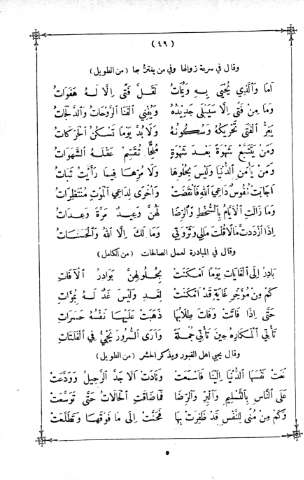 (٤٩)
وقال في سرعة زوالها وفي من يغتر بها (من الطويل)
أما والذي يحيى به ويمات لقل فتى إلا له هفوات
وما من فتى إلا سيبلى جديده وتفني الفتى الروحات والدلجات
يغر الفتى تحريكه وسكونه ولا بد يوما تسكن الحركات
ومن يتتبع شهوة بعد شهوة ملحا تقسم عقله الشهوات
ومن يأمن الدنيا وليس بحلوها ولا مرها فيما رأيت ثبات
أجابت نفوس داعي الله فانقضت وأخرى لداعي الموت منتظرات
وما زالت الأيام بالسخط والرضا لهن وعيد مرة وعدات
إذا ازددت مالا قلت مالي وثروتي وما لك إلا الله والحسنات
وقال في المبادرة لعمل الصالحات (من الكامل)
بادر إلى الغايات يوما أمكنت بحلولهن بوادر الآفات
كم من مؤخر غاية قد أمكنت لغد وليس غد له بموات
حتى إذا فاتت وفات طلابها ذهبت عليها نفسه حسرات
تأتي المكاره حين تأتي جملة وأرى السرور يجيء في الفلتات
وقال يحيي أهل القبور ويذكر الحشر (من الطويل)
نعت نفسها الدنيا إلينا فأسمعت ونادت ألا جد الرحيل وودعت
على الناس بالتسليم والبر والرضا فما ضاقت الحالات حتى توسعت
وكم من منى للنفس قد ظفرت بها فحنت إلى ما فوقها وتطلعت